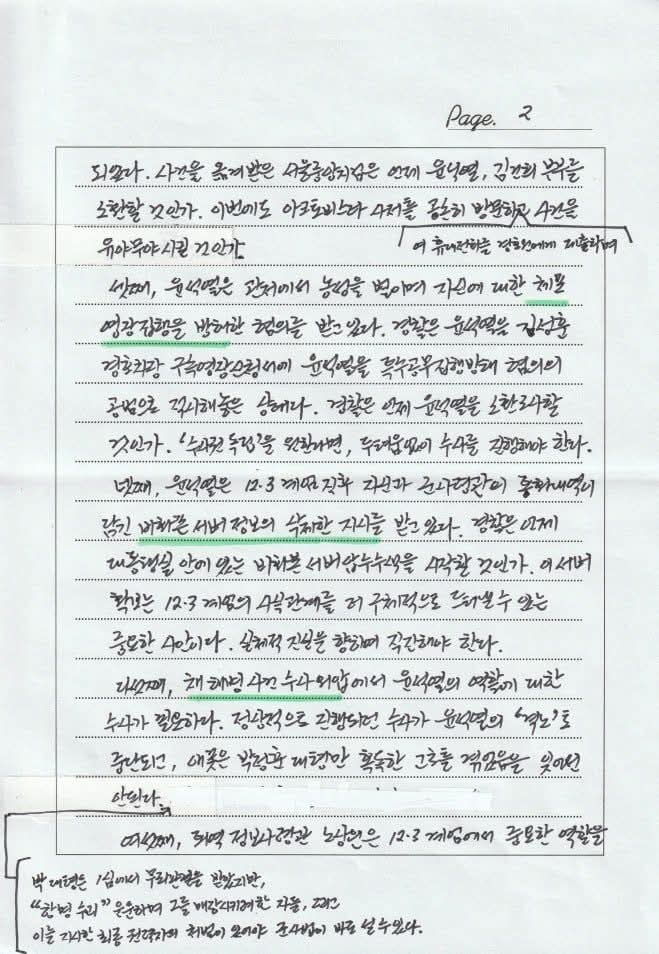 Page. 2
되었다. 사건을 옮겨받은 서울중앙지검은 언제 윤석열, 김건희 부부를
소환할 것인가. 이번에도 아크로비스타 사저를 공손히 방문하고 사건을
여 휴대전화를 경호원에게 제출하며
유야무야시킬 것인가
셋째, 윤석열은 관저에서 농성을 벌이며 자신에 대한 체포
영장집행을 방해한 혐의를 받고 있다. 경찰은 윤석열을 김성훈
경호차장 구속영장신청서에 윤석열을 특수공무집행방해 혐의의
공범으로 적시해놓은 상태다. 경찰은 언제 윤석열을 소환조사할
것인가. '수사권 독립'을 원한다면, 두려움없이 수사를 진행해야 한다.
넷째, 윤석열은 12.3 계엄 직후 자신과 군사령관의 통화내역이
담긴 비화폰 서버 정보의 삭제한 지시를 받고 있다. 경찰은 언제
대통령실 안에 있는 비화폰 서버 압수수색을 시작할 것인가. 이 서버
확보는 12.3 계엄의 사실관계를 더 구체적으로 드러낼 수 있는
중요한 사안이다. 실체적 진실을 향하여 직진해야 한다.
다섯째, 채 해병 사건 수사외압에서 윤석열의 역할에 대한
수사가 필요하다. 정상적으로 진행되던 수사가 윤석열의 '격노'로
중단되고, 애꿎은 박정훈 대령만 혹독한 고초를 겪었음을 잊어선
안된다.
여섯째, 퇴역 정보사령관 노상원은 12.3 계엄에서 중요한 역할을
박 대령은 1심에서 무죄판결을 받았지만,
"한명 수괴" 운운하며 그를 매장시키려 한 자들, 그리고
이를 지시한 최종 권력자의 처벌이 있어야 군사법이 바로 설 수 있다.